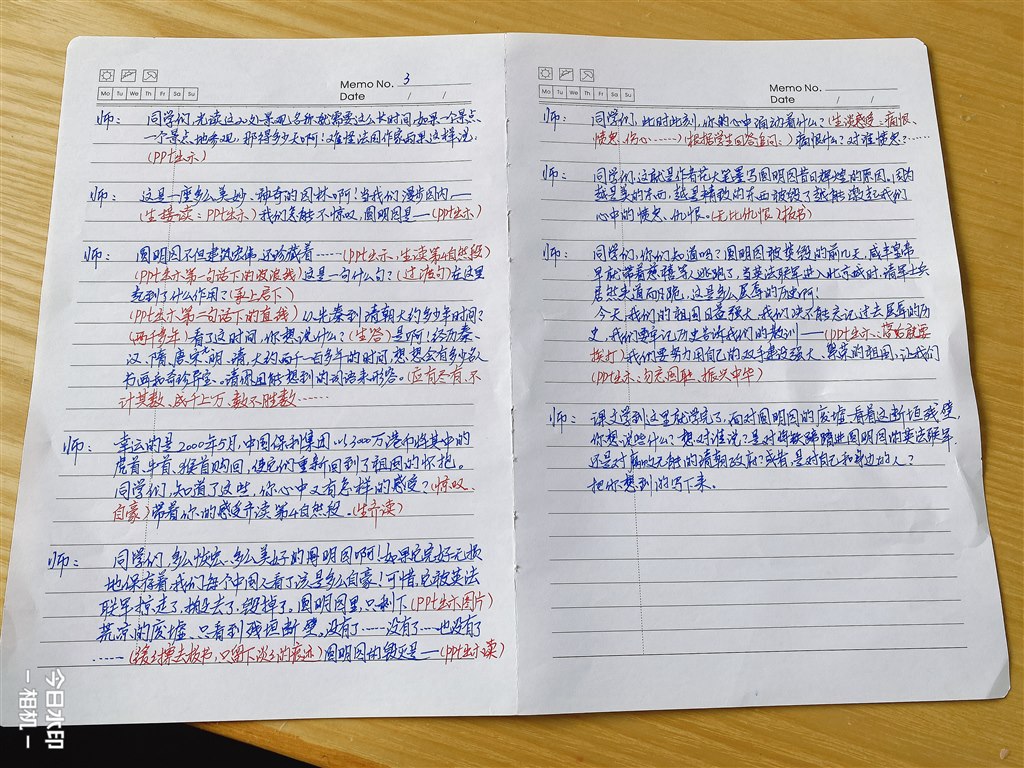 Memo No. 3
Mo Tu We Th Fr Sa Su
Date / /
师: 同学们,光读这入处景观名称就需要这么长时间,如果一个景点
一个景点地参观,那得多少天啊!难怪法国作家雨果这样说:
(PPt出示)
师: 这是一座多么美妙、神奇的园林啊!当我们漫步园内——
(生接读:PPt出示)我们怎能不惊叹,圆明园是——(PPt出示)
师: 圆明园不但建筑宏伟,还珍藏着……(PPt出示,生读第4自然段)
(PPt出示第一句话下的波浪线)这是一句什么句?(过渡句)在这里
起到了什么作用?(承上启下)
(PPt出示第二句话下的直线)从先秦到清朝大约多少年时间?
(两千多年)看了这时间,你想说什么?(生答)是啊!经历秦、
汉、隋、唐、宋、元、明、清,大约两千一百多年的时间,想想会有多少名人
书画和奇珍异宝。请你用能想到的词语来形容。(应有尽有、不
计其数、成千上万、数不胜数……
师: 幸运的是2000年5月,中国保利集团以3000万港币将其中的
虎首、牛首、猴首购回,使它们重新回到了祖国的怀抱。
同学们,知道了这些,你心中又有怎样的感受?(惊叹、
自豪)带着你的感受齐读第4自然段。(生齐读)
师: 同学们,多么恢宏、多么美好的圆明园啊!如果它完好无损
地保存着,我们每个中国人看了该是多么自豪!可惜,它被英法
联军掠走了,搬走去了,毁掉了。圆明园里,只剩下(PPt出示图片)
荒凉的废墟、只看到残垣断壁。没有了……没有了……也没有了
……(缓缓擦去板书,只留下淡淡的痕迹)圆明园的毁灭是——(PPt出示读)
Memo No.
Mo Tu We Th Fr Sa Su
Date / /
师: 同学们,此时此刻,你的心中涌动着什么?(生谈感受:痛恨、
愤怒、伤心……)(根据学生回答追问:)痛恨什么?对谁愤怒?……
师: 同学们,这就是作者花大笔墨写圆明园昔日辉煌的原因,因为
越是美的东西,越是精致的东西被毁了越能激起我们
心中的愤怒、仇恨。(无比仇恨)板书)
师: 同学们,你们知道吗?圆明园被焚毁的前几天,咸丰皇帝
早就带着慈禧等人逃跑了,当英法联军进入北京城时,清军士兵
居然夹道而跪,这是多么屈辱的历史啊!
今天,我们的祖国日益强大,我们决不能忘记过去屈辱的历
史,我们要牢记历史告诉我们的教训——(PPt出示:落后就要
挨打)我们要努力用自己的双手建设强大、繁荣的祖国,让我们
(PPt出示:勿忘国耻、振兴中华)
师: 课文学到这里就学完了,面对圆明园的废墟,看着这断垣残壁,
你想说些什么?想对谁说?是对肆意践踏圆明园的英法联军,
还是对腐败无能的清朝政府?或者,是对自己和身边的人?
把你想到的写下来。
今日水印
一相机一